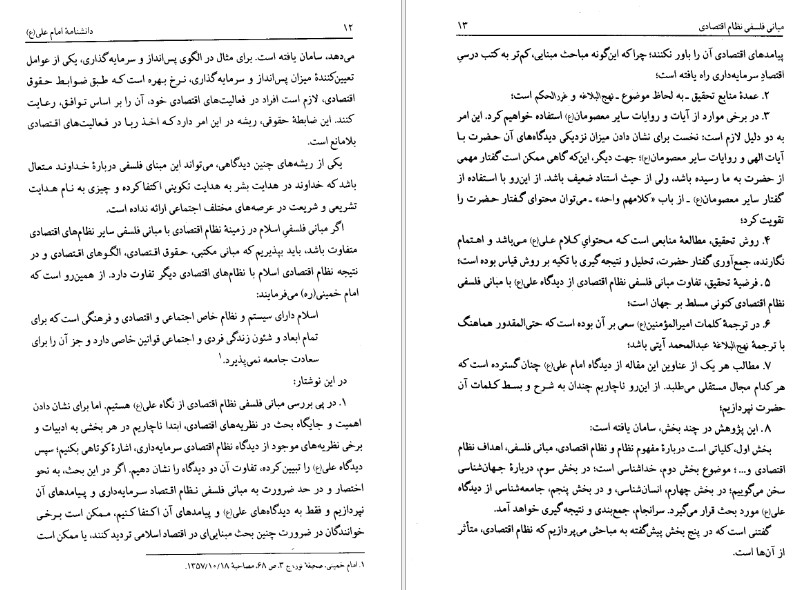 ۱۲ دانشنامهٔ امام علی(ع)
می‌دهد، سامان یافته است. برای مثال در الگوی پس‌انداز و سرمایه‌گذاری، یکی از عوامل
تعیین‌کنندهٔ میزان پس‌انداز و سرمایه‌گذاری، نرخ بهره است که طبق ضوابط حقوق
اقتصادی، لازم است افراد در فعالیت‌های اقتصادی خود، آن را بر اساس توافق، رعایت
کنند. این ضابطهٔ حقوقی، ریشه در این امر دارد که اخذ ربا در فعالیت‌های اقتصادی
بلامانع است.
یکی از ریشه‌های چنین دیدگاهی، می‌تواند این مبنای فلسفی دربارهٔ خداوند متعال
باشد که خداوند در هدایت بشر به هدایت تکوینی اکتفا کرده و چیزی به نام هدایت
تشریعی و شریعت در عرصه‌های مختلف اجتماعی ارائه نداده است.
اگر مبانی فلسفی اسلام در زمینهٔ نظام اقتصادی با مبانی فلسفی سایر نظام‌های اقتصادی
متفاوت باشد، باید بپذیریم که مبانی مکتبی، حقوق اقتصادی، الگوهای اقتصادی و در
نتیجه نظام اقتصادی اسلام با نظام‌های اقتصادی دیگر تفاوت دارد. از همین‌رو است که
امام خمینی(ره) می‌فرمایند:
اسلام دارای سیستم و نظام خاص اجتماعی و اقتصادی و فرهنگی است که برای
تمام ابعاد و شئون زندگی فردی و اجتماعی قوانین خاصی دارد و جز آن را برای
سعادت جامعه نمی‌پذیرد.۱
در این نوشتار:
۱. در پی بررسی مبانی فلسفی نظام اقتصادی از نگاه علی(ع) هستیم. اما برای نشان دادن
اهمیت و جایگاه بحث در نظریه‌های اقتصادی، ابتدا ناچاریم در هر بخشی به ادبیات و
برخی نظریه‌های موجود از دیدگاه نظام اقتصادی سرمایه‌داری، اشارهٔ کوتاهی بکنیم؛ سپس
دیدگاه علی(ع) را تبیین کرده، تفاوت آن دو دیدگاه را نشان دهیم. اگر در این بحث، به نحو
اختصار و در حد ضرورت به مبانی فلسفی نظام اقتصاد سرمایه‌داری و پیامدهای آن
نپردازیم و فقط به دیدگاه‌های علی(ع) و پیامدهای آن اکتفا کنیم، ممکن است برخی
خوانندگان در ضرورت چنین بحث مبنایی‌ای در اقتصاد اسلامی تردید کنند، یا ممکن است
۱. امام خمینی، صحیفهٔ نور، ج ۳، ص ۶۸، مصاحبهٔ ۱۳۵۷/۱۰/۱۸.
مبانی فلسفی نظام اقتصادی ۱۳
پیامدهای اقتصادی آن را باور نکنند؛ چرا که این‌گونه مباحث مبنایی، کم‌تر به کتب درسیِ
اقتصادِ سرمایه‌داری راه یافته است؛
۲. عمدهٔ منابع تحقیق ـ به لحاظ موضوع ـ نهج‌البلاغه و غررالحکم است؛
۳. در برخی موارد از آیات و روایات سایر معصومان(ع) استفاده خواهیم کرد. این امر
به دو دلیل لازم است: نخست برای نشان دادن میزان نزدیکی دیدگاه‌های آن حضرت با
آیات الهی و روایات سایر معصومان(ع)؛ جهت دیگر، این‌که گاهی ممکن است گفتار مهمی
از حضرت به ما رسیده باشد، ولی از حیث استناد ضعیف باشد. از این‌رو با استفاده از
گفتار سایر معصومان(ع) ـ از باب «کلامهم واحد» ـ می‌توان محتوای گفتار حضرت را
تقویت کرد؛
۴. روش تحقیق، مطالعهٔ منابعی است که محتوای کلام علی(ع) می‌باشد و اهتمام
نگارنده، جمع‌آوری گفتار حضرت، تحلیل و نتیجه‌گیری با تکیه بر روش قیاس بوده است؛
۵. فرضیهٔ تحقیق، تفاوت مبانی فلسفی نظام اقتصادی از دیدگاه علی(ع) با مبانی فلسفی
نظام اقتصادی کنونی مسلط بر جهان است؛
۶. در ترجمهٔ کلمات امیرالمؤمنین(ع) سعی بر آن بوده است که حتی‌المقدور هماهنگ
با ترجمهٔ نهج‌البلاغهٔ عبدالمحمد آیتی باشد؛
۷. مطالب هر یک از عناوین این مقاله از دیدگاه امام علی(ع) چنان گسترده است که
هر کدام مجال مستقلی می‌طلبد. از این‌رو ناچاریم چندان به شرح و بسط کلمات آن
حضرت نپردازیم؛
۸. این پژوهش در چند بخش، سامان یافته است:
بخش اول، کلیاتی است دربارهٔ مفهوم نظام و نظام اقتصادی، مبانی فلسفی، اهداف نظام
اقتصادی و...؛ موضوع بخش دوم، خداشناسی است؛ در بخش سوم، دربارهٔ جهان‌شناسی
سخن می‌گوییم؛ در بخش چهارم، انسان‌شناسی، و در بخش پنجم، جامعه‌شناسی از دیدگاه
علی(ع) مورد بحث قرار می‌گیرد. سرانجام، جمع‌بندی و نتیجه‌گیری خواهد آمد.
گفتنی است که در پنج بخش پیش‌گفته به مباحثی می‌پردازیم که نظام اقتصادی، متأثر
از آن‌ها است.